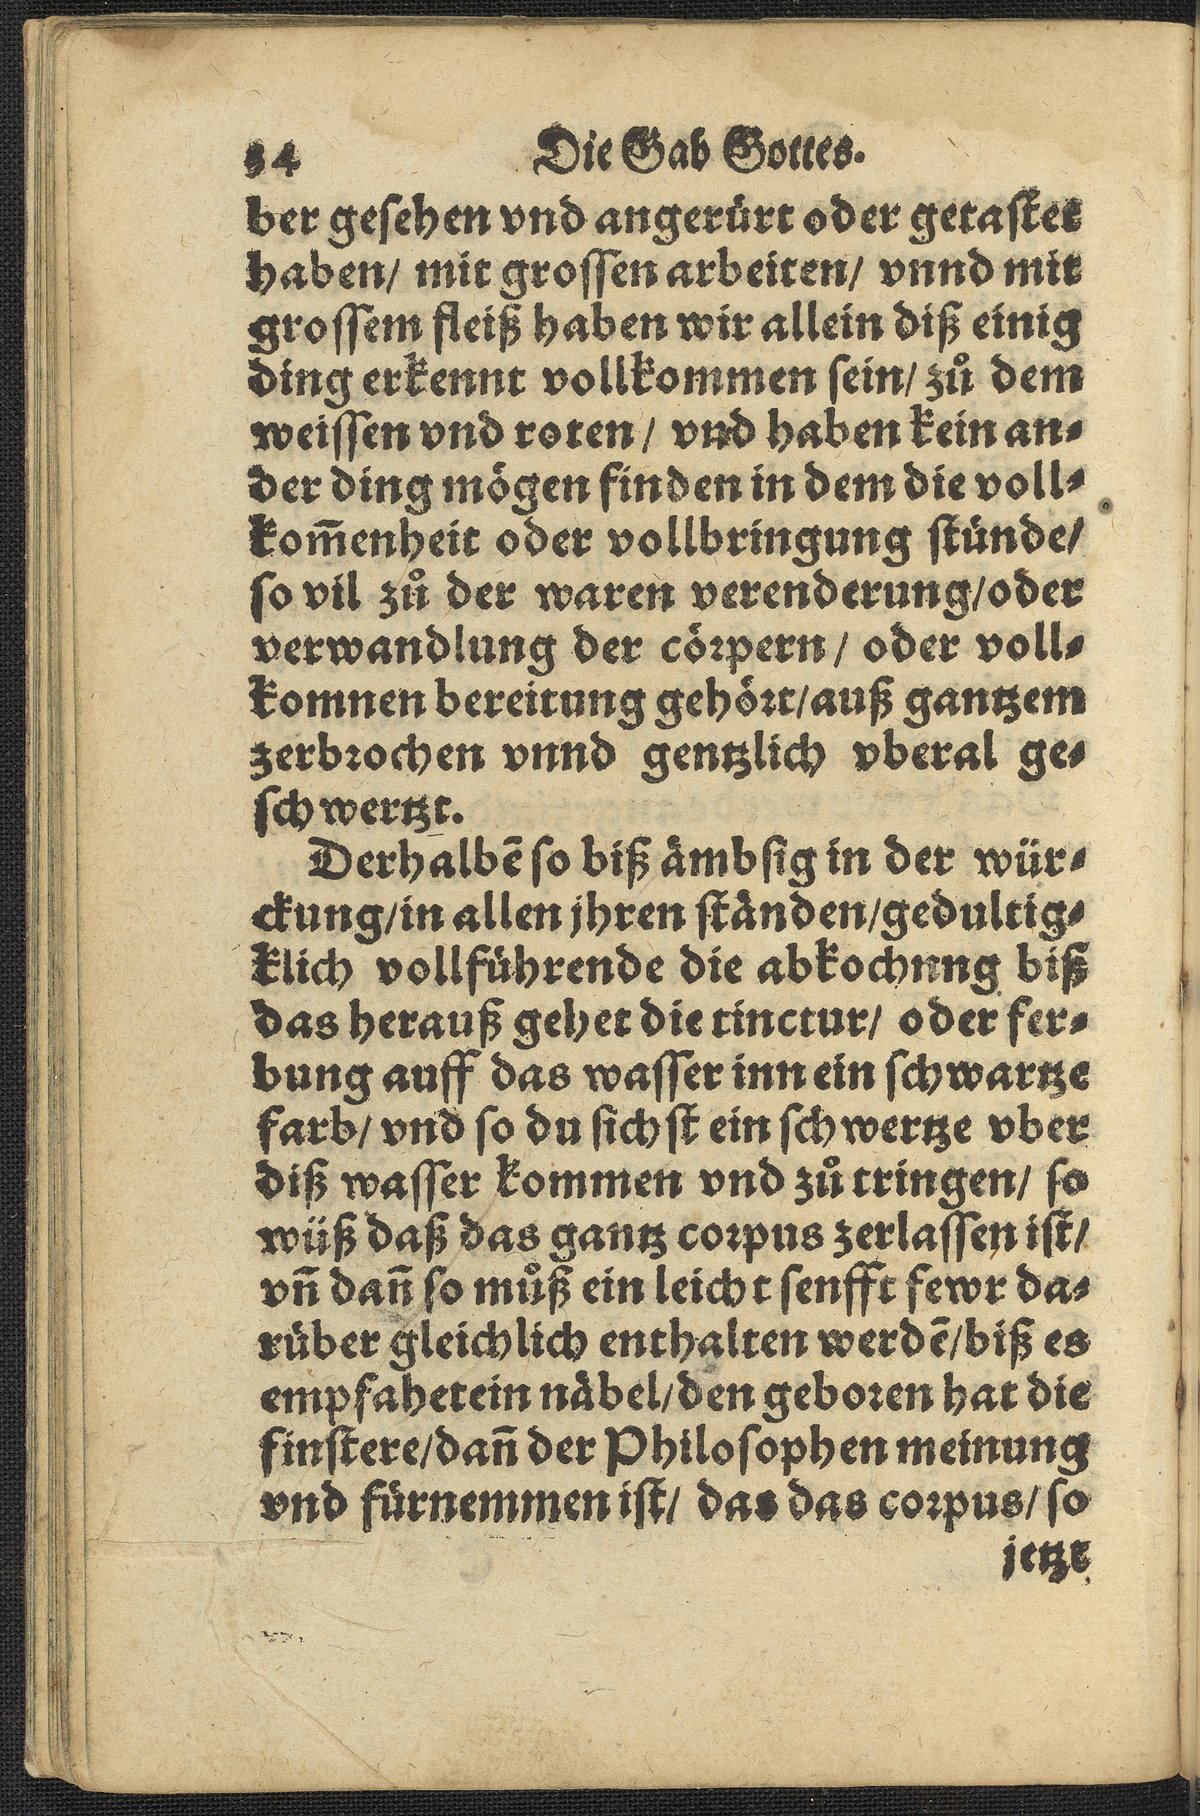 54 Die Gab Gottes.
ber gesehen vnd angerürt oder getastet
haben/ mit grossen arbeiten/ vnnd mit
grossem fleiß haben wir allein diß einig
ding erkennt vollkommen sein/ zů dem
weissen vnd roten/ vnd haben kein an-
der ding mögen finden in dem die voll-
kom̄enheit oder vollbringung stünde/
so vil zů der waren verenderung/oder
verwandlung der cörpern/ oder voll-
komnen bereitung gehört/auß gantzem
zerbrochen vnnd gentzlich vberal ge-
schwertzt.
Derhalbē so biß ämbsig in der wür-
ckung/in allen jhren ständen/gedultig-
klich vollführende die abkochnng biß
das herauß gehet die tinctur/ oder fer-
bung auff das wasser inn ein schwartze
farb/ vnd so du sichst ein schwertze vber
diß wasser kommen vnd zů tringen/ so
wüß daß das gantz corpus zerlassen ist/
vn̄ dan̄ so můß ein leicht senfft fewr da-
rüber gleichlich enthalten werdē/biß es
empfahet ein näbel/den geboren hat die
finstere/dan̄ der Philosophen meinung
vnd fürnemmen ist/ das das corpus/ so
jetzt